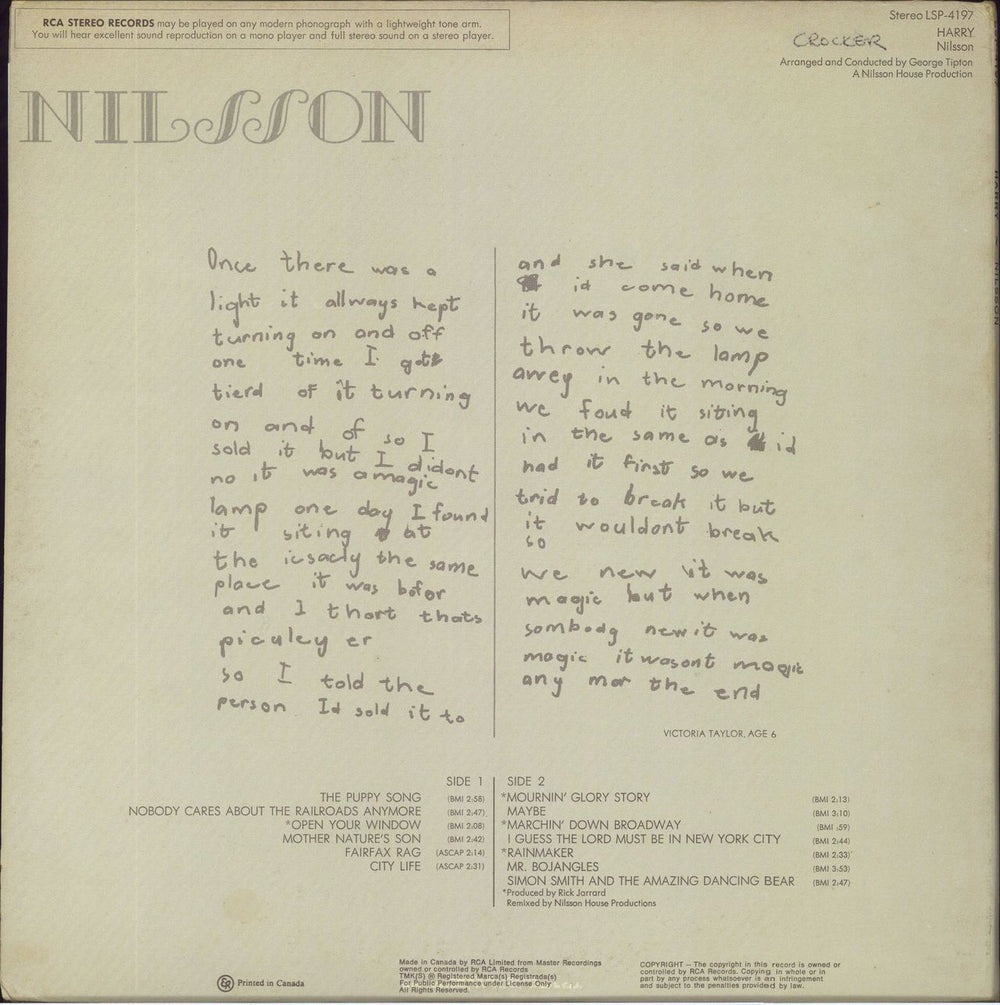 RCA STEREO RECORDS may be played on any modern phonograph with a lightweight tone arm.
You will hear excellent sound reproduction on a mono player and full stereo sound on a stereo player.
Stereo LSP-4197
CROCKER
HARRY
Nilsson
Arranged and Conducted by George Tipton
A Nilsson House Production
NILSSON
Once there was a
light it allways kept
turning on and off
one time I got
tierd of it turning
on and of so I
sold it but I didont
no it was a magic
lamp one day I found
it siting at
the icsacly the same
place it was bofor
and I thort thats
piculey er
so I told the
person Id sold it to
and she said when
id come home
it was gone so we
throw the lamp
awey in the morning
we foud it siting
in the same as id
had it first so we
trid to break it but
it wouldont break
so
we new it was
magic but when
sombody new it was
magic it wasont magic
any mor the end
VICTORIA TAYLOR, AGE 6
SIDE 1
THE PUPPY SONG (BMI 2:58)
NOBODY CARES ABOUT THE RAILROADS ANYMORE (BMI 2:47)
*OPEN YOUR WINDOW (BMI 2:08)
MOTHER NATURE'S SON (BMI 2:42)
FAIRFAX RAG (ASCAP 2:14)
CITY LIFE (ASCAP 2:31)
SIDE 2
*MOURNIN' GLORY STORY (BMI 2:13)
MAYBE (BMI 3:10)
*MARCHIN' DOWN BROADWAY (BMI :59)
I GUESS THE LORD MUST BE IN NEW YORK CITY (BMI 2:44)
*RAINMAKER (BMI 2:33)
MR. BOJANGLES (BMI 3:53)
SIMON SMITH AND THE AMAZING DANCING BEAR (BMI 2:47)
*Produced by Rick Jarrard
Remixed by Nilsson House Productions
Printed in Canada
Made in Canada by RCA Limited from Master Recordings
owned or controlled by RCA Records
TMK(S) ® Registered Marca(s) Registrada(s)
For Public Performance under License Only
All Rights Reserved.
COPYRIGHT – The copyright in this record is owned or
controlled by RCA Records. Copying in whole or in
part by any process whatsoever is an infringement
and subject to the penalties provided by law.